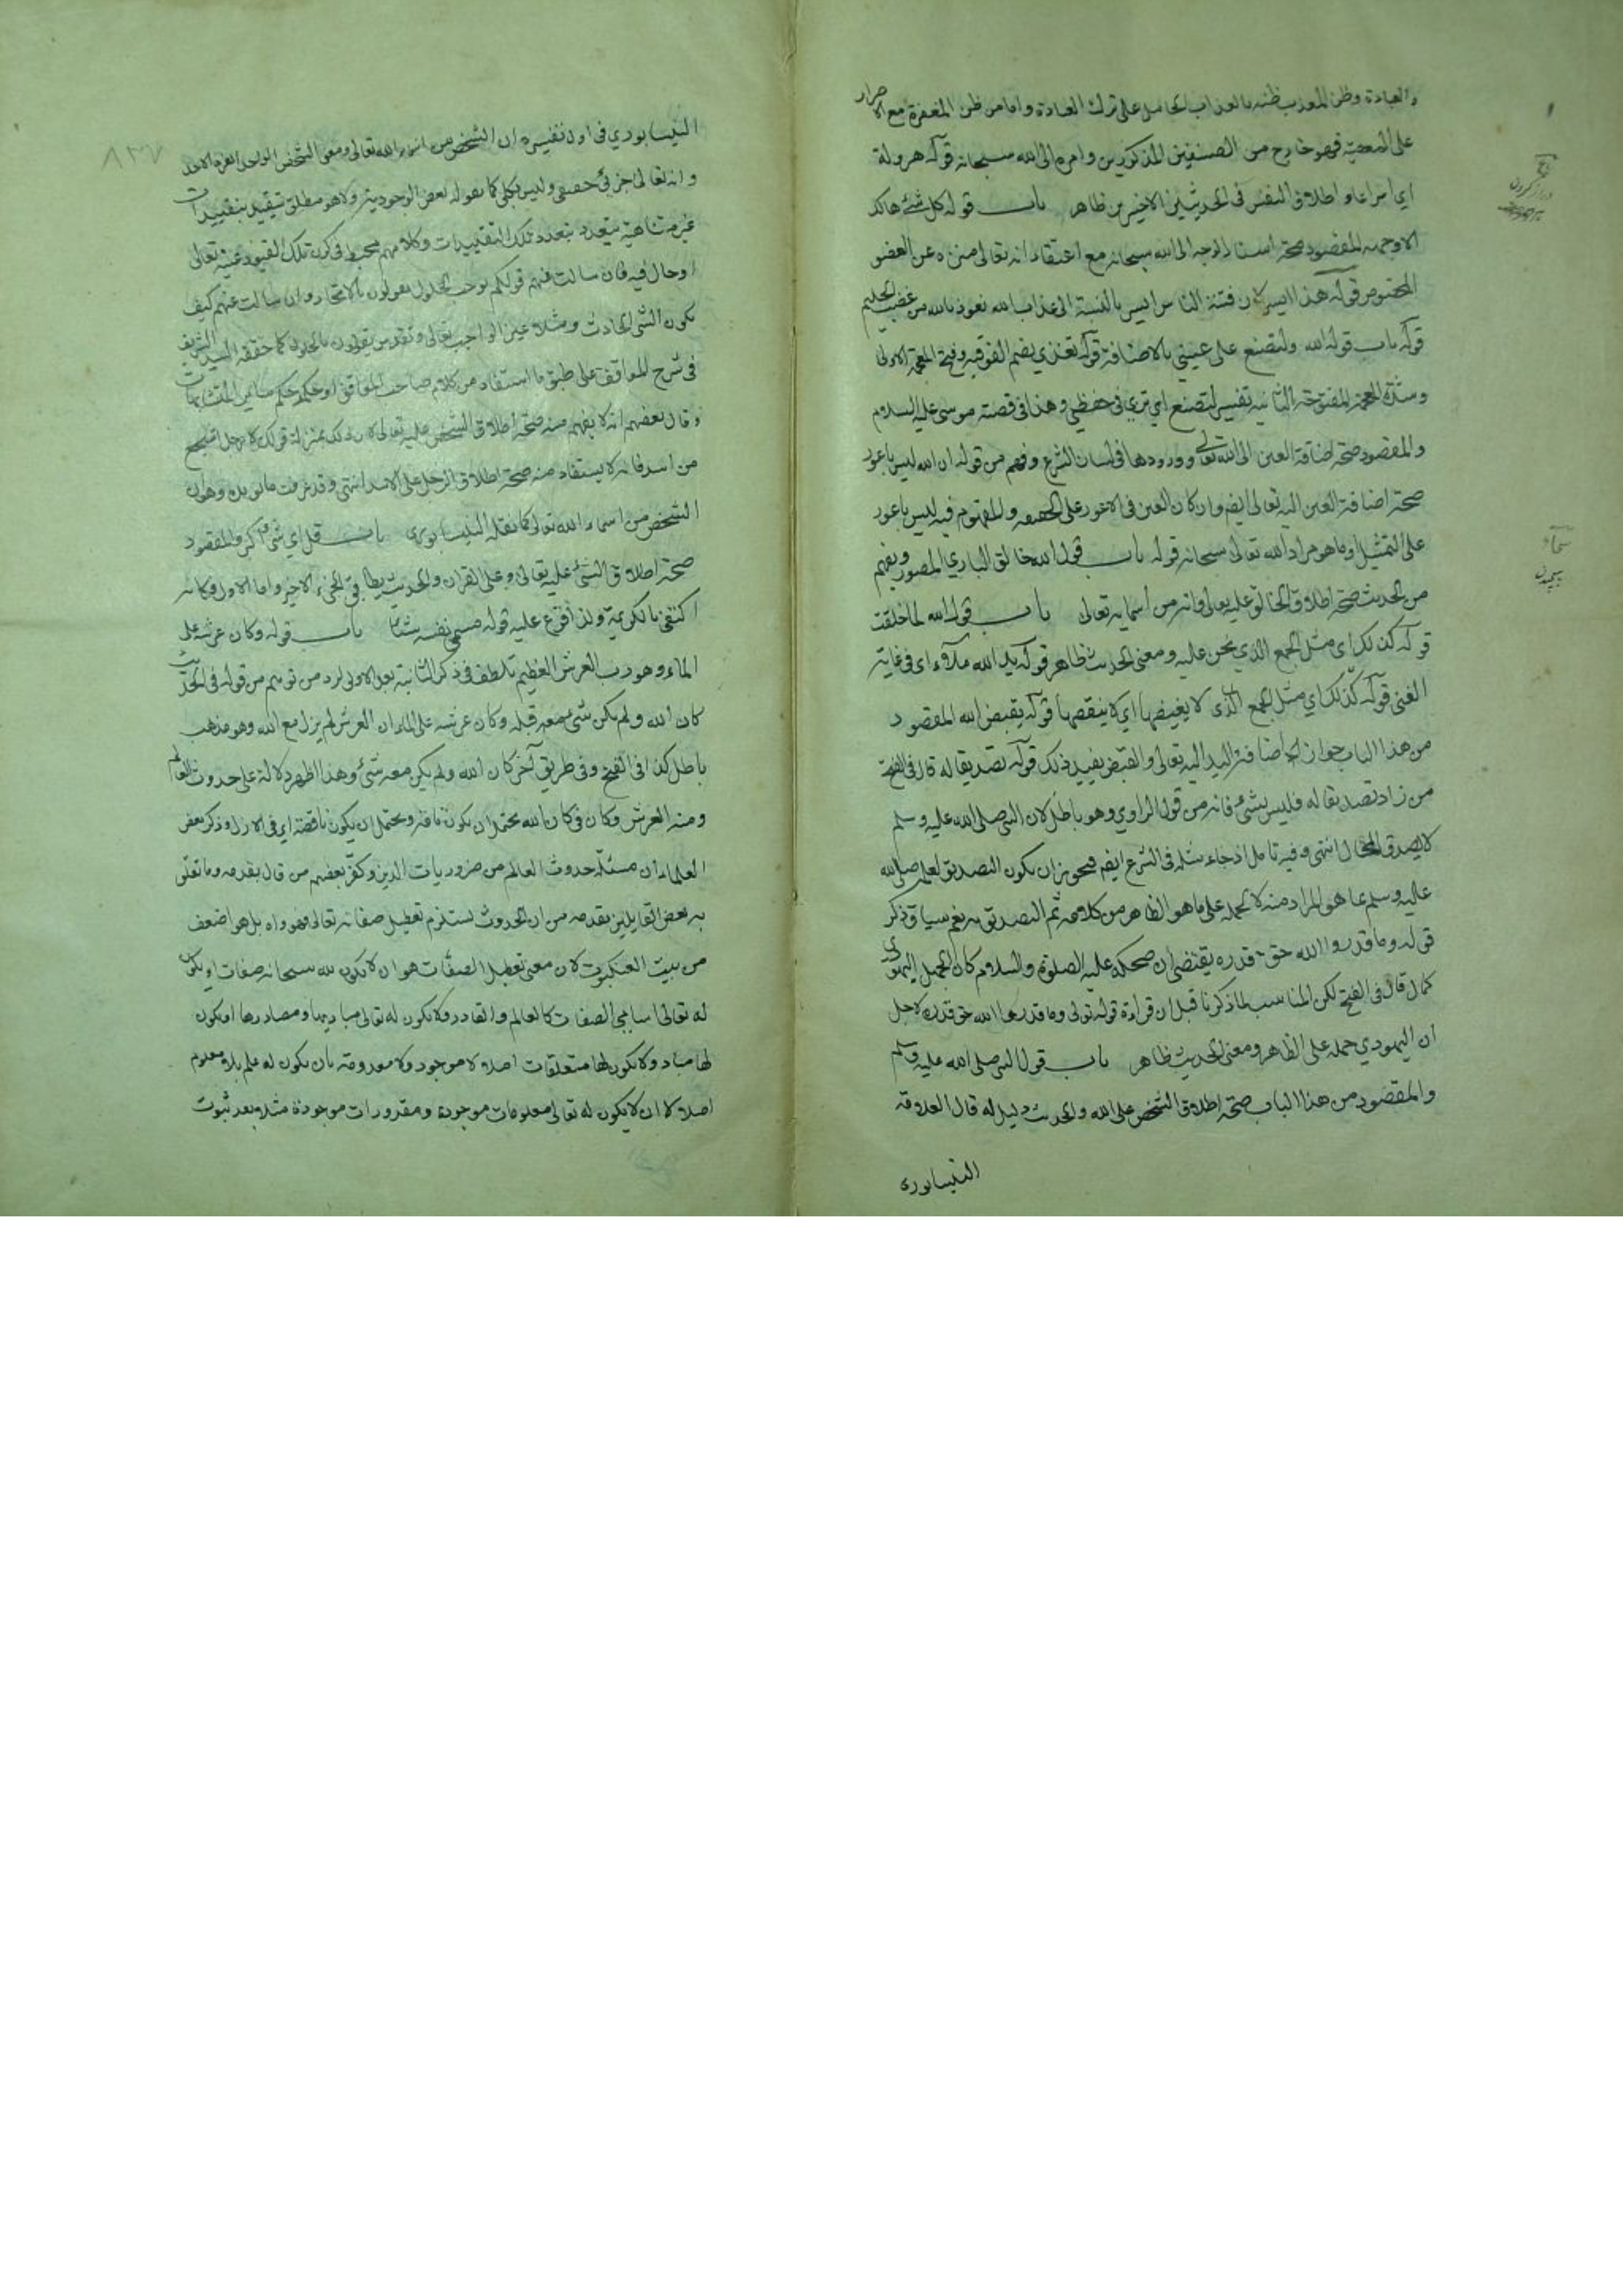 والعبادة وظن المعذب ظنه بالعذاب الحامل على ترك العبادة واما من ظن المغفرة مع الاصرار
على المعصية فهو خارج من الصنفين المذكورين وامره الى الله سبحانه قوله هرولة
اي اسراعا واطلاق النفس في الحديثين الاخيرين ظاهر باب قوله كل شئ هالك
الا وجهه المقصود صحة اسناد الوجه الى الله سبحانه مع اعتقاد انه تعالى منزه عن العضو
المخصوص قوله هذا ايسر لان فتنة الناس ايسر بالنسبة الى عذاب الله نعوذ بالله من غضب الحليم
قوله باب قول الله ولتصنع على عيني بالاضافة قوله تغذي بضم الفوقية وفتح المعجمة الاولى
وشدة المعجمة المفتوحة الثانية تفسير لتصنع اي تربى في حفظي وهذا في قصة موسى عليه السلام
والمقصود صحة اضافة العين الى الله تعالى وورودها في لسان الشرع وفهم من قوله ان الله ليس باعور
صحة اضافة العين اليه تعالى ايضم وان كان العين في الاعور على الحقيقة والمفهوم فيه ليس باعور
على التمثيل او ما هو مراد الله تعالى سبحانه قوله باب قول الله خالق الباري المصور ويفهم
من الحديث صحة اطلاق الخالق عليه تعالى وانه من اسمايه تعالى باب قول الله لما خلقت
قوله كذلك اى مثل الجمع الذي نحن عليه ومعنى الحديث ظاهر قوله يد الله ملآى اى في غاية
الغنى قوله كذلك اي مثل الجمع الذى لا يغيضها اي لا ينقصها قوله يقبض الله المقصود
من هذا الباب جواز اضافة اليد اليه تعالى والقبض يفيد ذلك قوله تصديقا له قال في الفتح
من زاد تصديقا له فليس بشئ فانه من قول الراوي وهو باطل لان النبى صلى الله عليه وسلم
لا يصدق المحال انتهى وفيه تامل اذ جاء مثله في الشرع ايضم فيجوز ان يكون التصديق لعلمه صلى الله
عليه وسلم بما هو المراد منه لا لحمله على ما هو الظاهر من كلامه ثم التصديق به نعم سياق ذكر
قوله وما قدروا الله حق قدره يقتضى ان ضحكه عليه الصلوة والسلام كان لجهل اليهودى
كما قال في الفتح لكن المناسب لما ذكرنا قبل ان قراءة قوله تعالى وما قدروا الله حق قدره لاجل
ان اليهودي حمله على الظاهر ومعنى الحديث ظاهر باب قول النبى صلى الله عليه وسلم
والمقصود من هذا الباب صحة اطلاق الشخص على الله والحديث دليل له قال العلامة
النيسابورى
٨٣٧
النيسابوري في اول تفسيره ان الشخص من اسماء الله تعالى ومعنى الشخص
وانه تعالى جزئي حقيقى وليس بكلى كما يقوله بعض الوجودية ولا هو مطلق يتقيد بتقييدات
غير متناهية يتعدد بتعدد تلك التقييدات وكلامهم مخبط في كون تلك القيود عينه تعالى
او حال فيه فان سالت عنهم قولكم يوجب الحلول يقولون بالاتحاد وان سالت عنهم كيف
يكون الشئ الحادث مثلا عين الواجب تعالى وتقدس يقولون بالحلول كما حققه السيد الشريف
في شرح المواقف على طبق ما استفاد من كلام صاحب المواقف
وقال بعضهم انه لا يفهم منه صحة اطلاق الشخص عليه تعالى لان ذلك بمنزلة قولك لا رجل اشجع
من اسد فانه لا يستفاد منه صحة اطلاق الرجل على الاسد انتهى وقد عرفت ما يؤيده وهو ان
الشخص من اسماء الله تعالى كما نقله النيسابورى باب قل اي شئ اكبر والمقصود
صحة اطلاق الشئ عليه تعالى وعلى القران والحديث يطابق الجزء الاخير واما الاول فكانه
اكتفى بالكريمة ولذا فرع عليه قوله فسمى نفسه شئا باب قوله وكان عرشه على
الماء وهو رب العرش العظيم تلطف في ذكر الثانية بعد الاولى لرد من توهم من قوله في الحديث
كان الله ولم يكن شئ معه قبله وكان عرشه على الماء ان العرش لم يزل مع الله وهو مذهب
باطل كذا في الفتح وفي طريق آخر كان الله ولم يكن معه شئ وهذا اظهر دلالة على حدوث العالم
ومنه العرش وكان في كان الله يحتمل ان يكون تامة ويحتمل ان يكون ناقصة اي في الازل وذكر بعض
العلماء ان مسئلة حدوث العالم من ضروريات الدين وكفر بعضهم من قال بقدمه وما تعلق
به بعض القايلين بقدمه من ان الحدوث يستلزم تعطيل صفاته تعالى فهو واه بل هو اضعف
من بيت العنكبوت لان معنى تعطيل الصفات هو ان لا يكون لله سبحانه صفات او يكون
له تعالى اسامي الصفات كالعالم والقادر ولا يكون له تعالى مباديها ومصادرها او يكون
لها مباد ولا يكون لها متعلقات اصلا لا موجود ولا معدومة بان يكون له علم بلا معلوم
اصلا لا ان لا يكون له تعالى معلومات موجودة ومقدورات موجودة مثلا بعد ثبوت